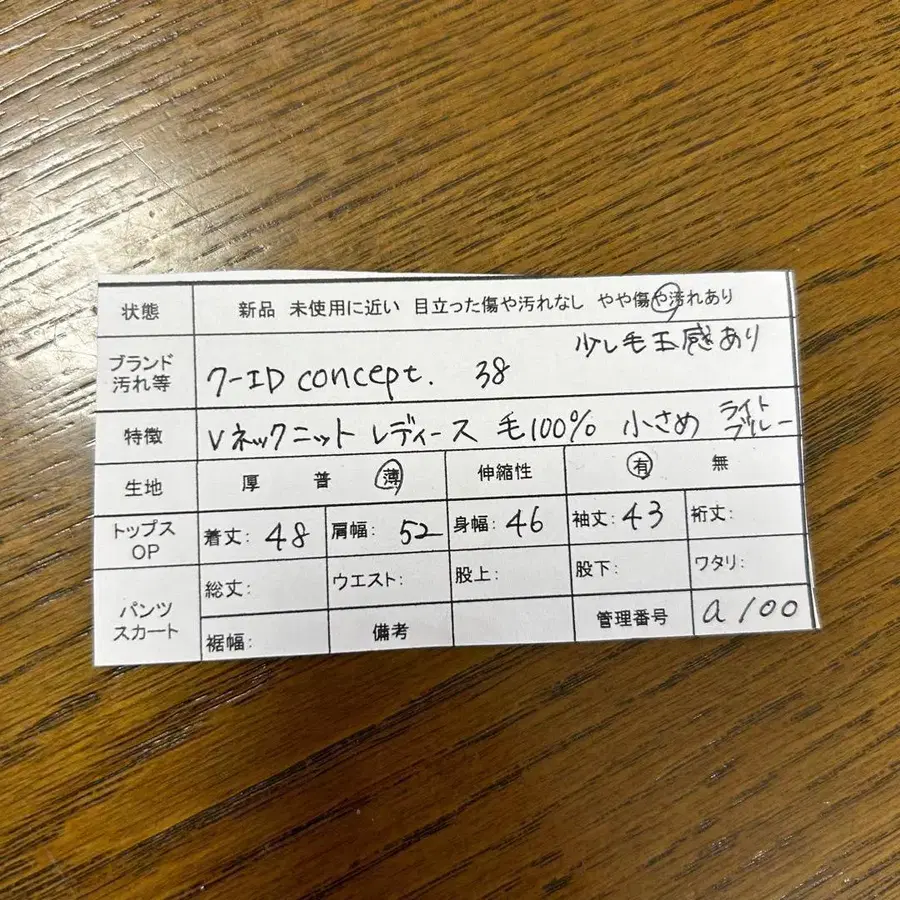 状態 新品 未使用に近い 目立った傷や汚れなし やや傷や汚れあり
ブランド 汚れ等 ワーID concept. 38 少し毛玉感あり
特徴 Vネックニット レディース 毛100% 小さめ ライトブルー
生地 厚 普 薄 伸縮性 有 無
トップス OP 着丈: 48 肩幅: 52 身幅: 46 袖丈: 43 裄丈:
パンツ スカート 総丈: ウエスト: 股上: 股下: ワタリ:
裾幅: 備考 管理番号 a100